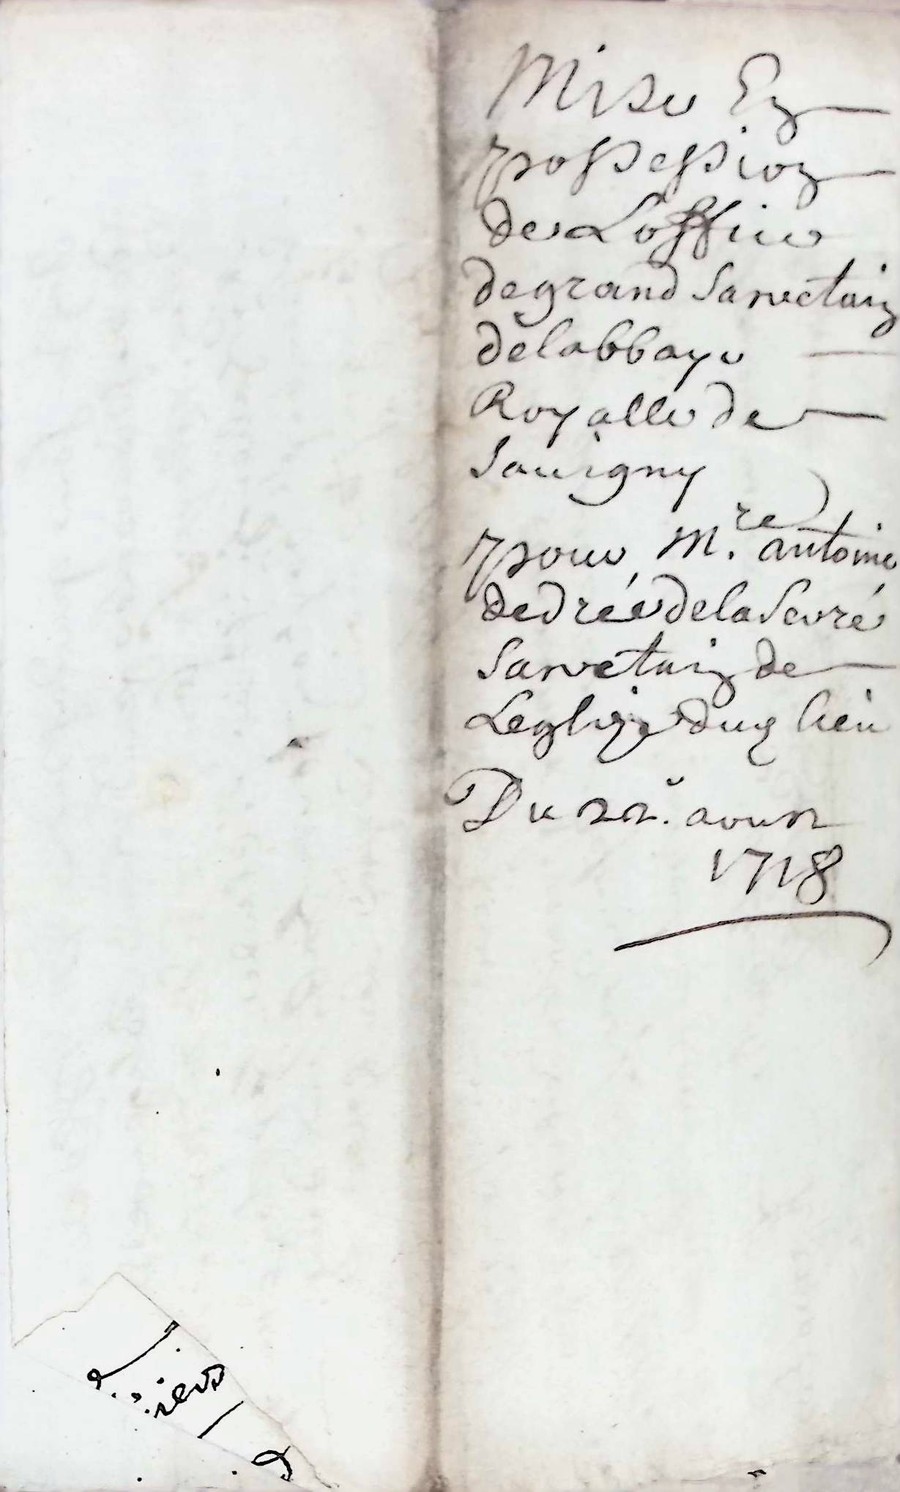 Mise En
possession
de Loffice
de grand Sacrestain
de labbaye
Royalle de
Savigny
pour M.re antoine
de drée de la Serré
Sacrestain de
Leglize dud lieu
Du 22e. aoust
1718